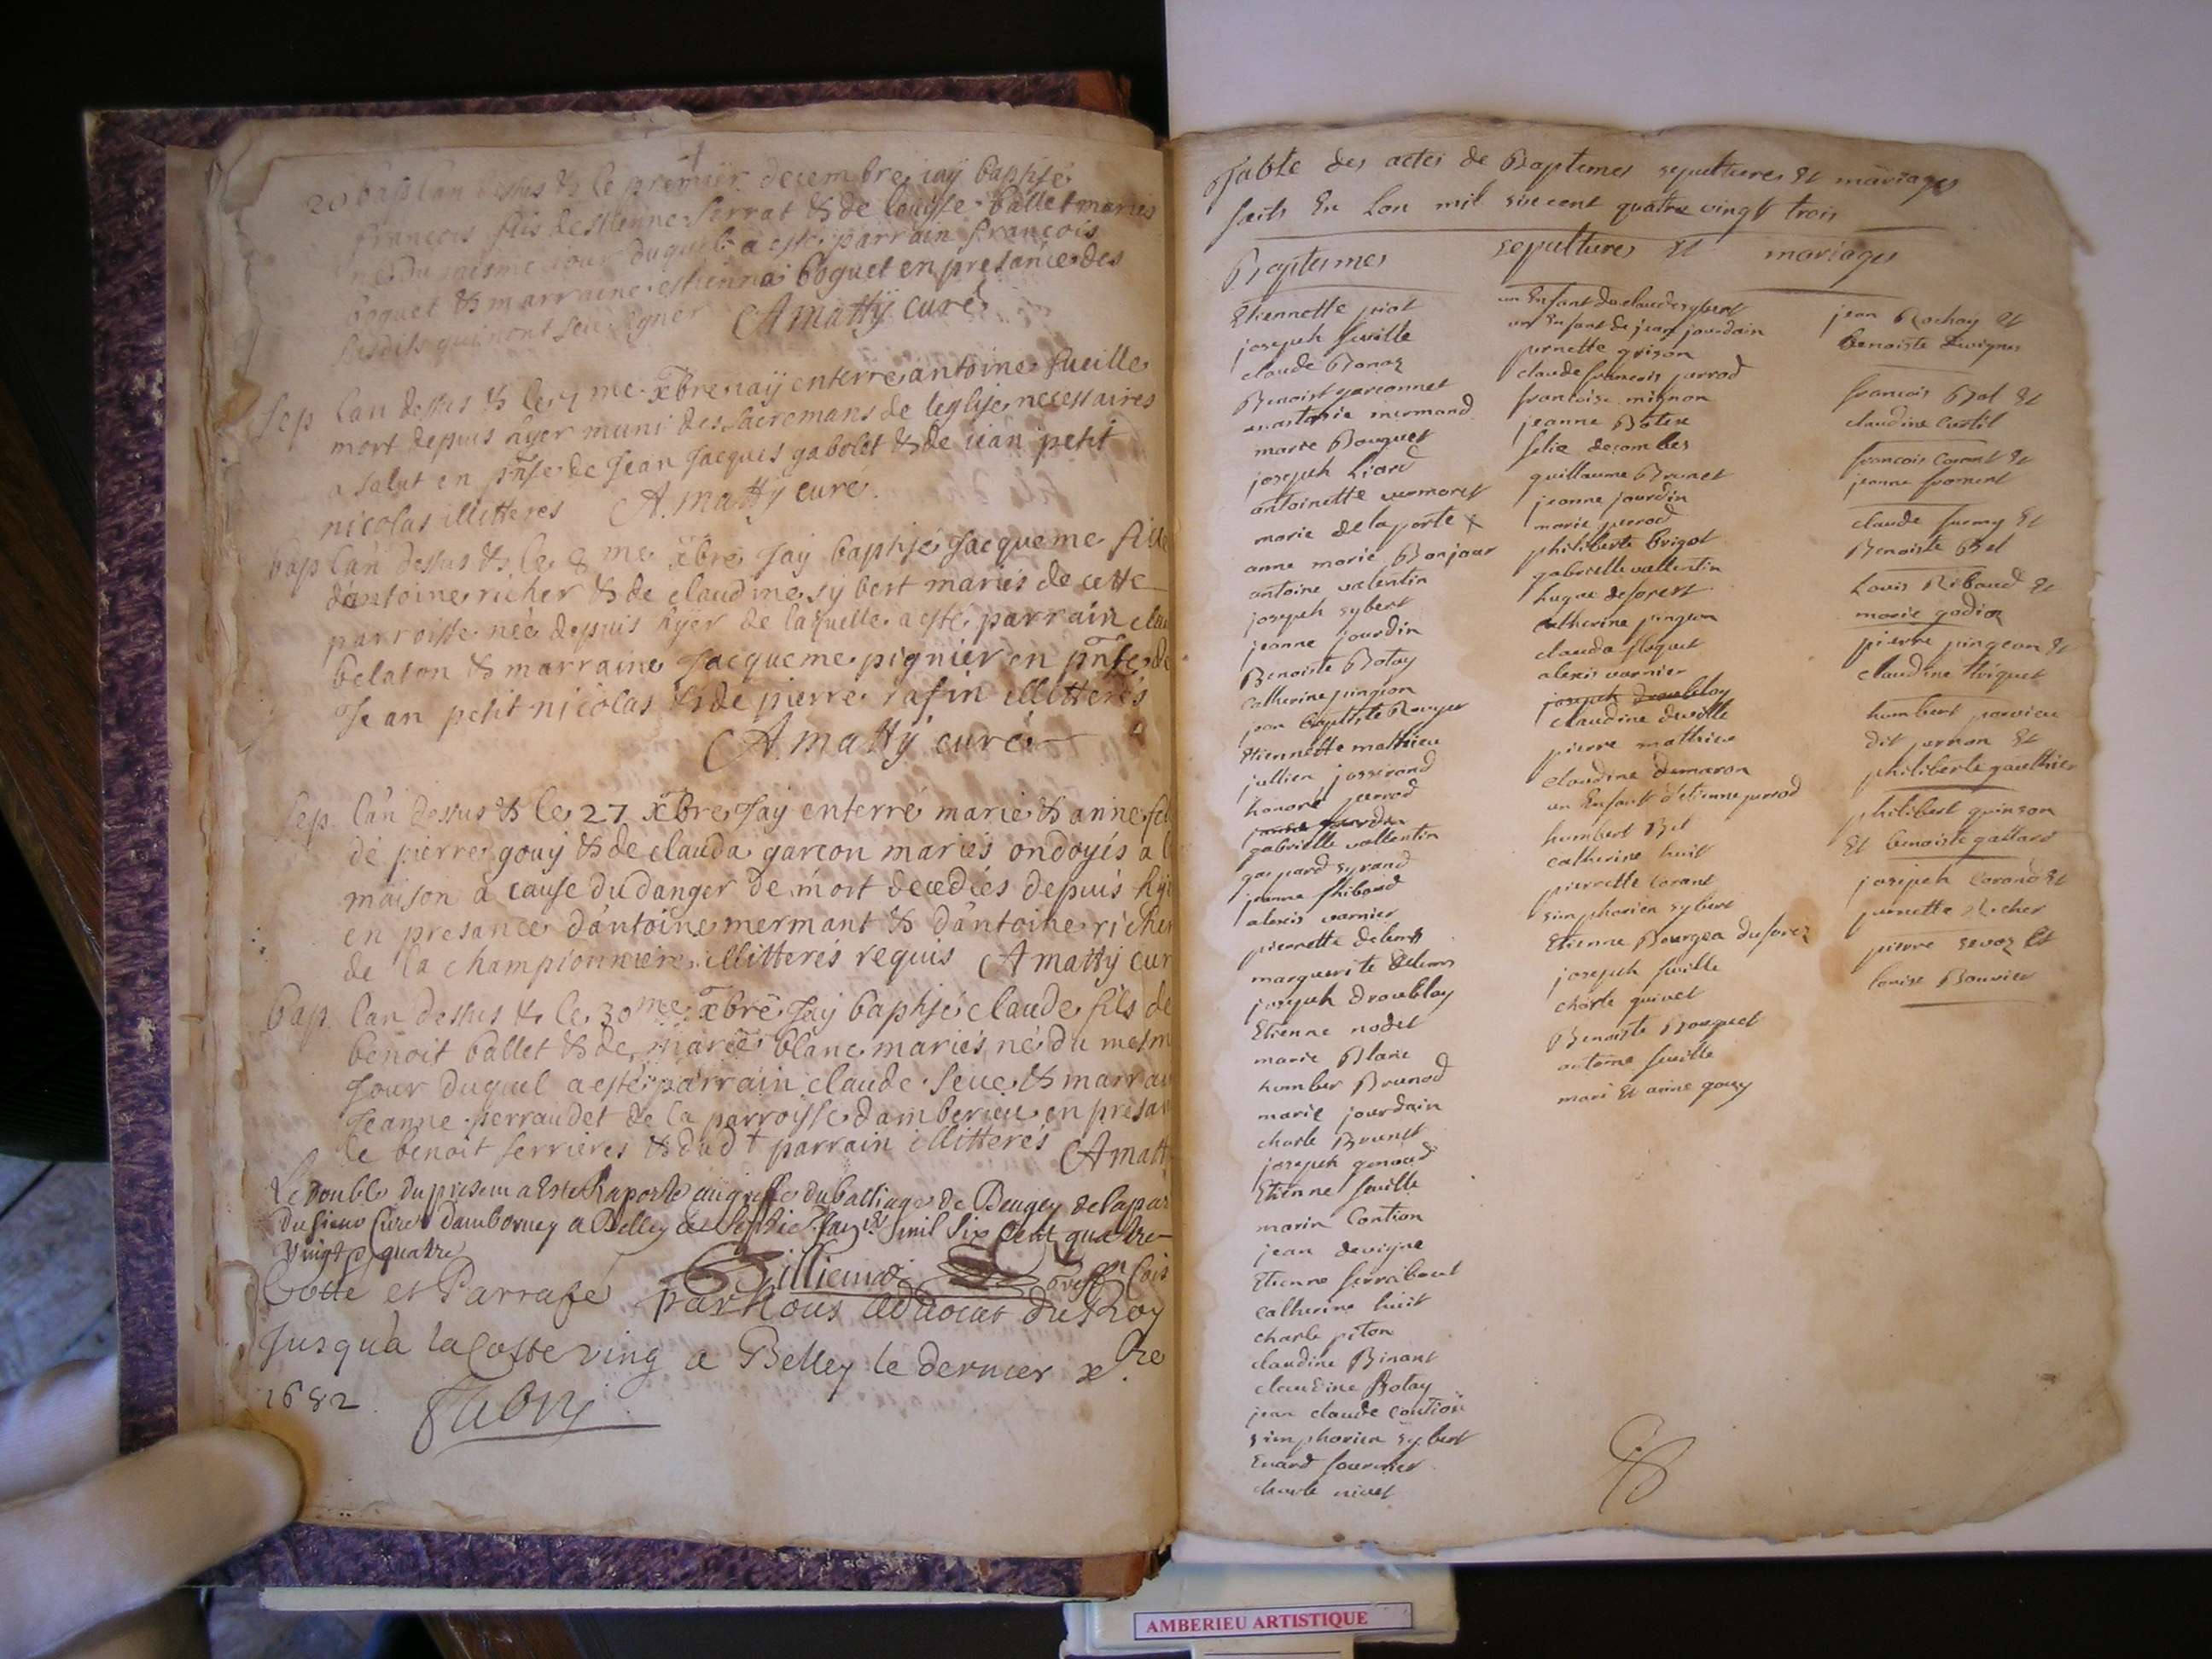 20 bap lan dessus & le premier decembre iay baptisé
francois fils destienne serrat & de louyse ballet mariés
né du mesme iour duquel a esté parrain francois
boquet & marraine estienna boquet en presance des
susdits qui n'ont sceu signer A matty curé
sep lan dessus & le 7me xbre iaÿ enterré antoine fueille
mort depuis hÿer muni des sacremans de leglise necessaires
a salut en pñse de Jean Jacques gabolet & de iean petit
nicolas illitterés A. matty curé.
bap lan dessus & le 8me xbre Jaÿ baptisé Jacqueme fille
dantoine richer & de claudine sybert mariés de cette
parroisse née depuis hÿer de laquelle a esté parrain clau
belaton & marraine Jacqueme pignier en pñse de
Jean petit nicolas & de pierre rafin illitterés
A matty curé
sep. lan dessus & le 27 xbre Jaÿ enterré marie & anne fil
de pierre gouÿ & de clauda garcon mariés ondoyés a l
maison a cause du danger de mort decedées depuis hÿe
en presance dantoine mermant & dantoine richer
de la championniere illitterés requis A matty cur
bap. lan dessus & le 30me xbre Jaÿ baptisé claude fils de
benoit ballet & de marie blanc mariés né du mesm
Jour duquel a esté parrain claude seue & marrai
Jeanne perraudet de la parroisse damberieu en presan
de benoit ferrieres & dud t parrain illitterés A matt
Le double du presant a esté Raporté au greffe du balliage de Beugey de la par
du sieur Curé dambornay a Belley mil six cent quatre
vingt quatre
Cotté et Parrafé par Nous advocat du Roy
Jusqu'a la Cotte ving a Belley le dernier xbre
1682
Table des actes de Baptemes sepultures Et mariages
faits En Lan mil six cent quatre vingt trois
Baptemes sepultures Et mariages
Etiennette piat
joseph feuille
claude Bonaz
Benoist garconnet
anastasie mermand
marie Bouquet
joseph Liard
antoinette uermoret
marie de la porte x
anne marie Bonjour
antoine valentin
joseph sybert
jeanne jourdin
Benoiste Botay
catherine pingeon
jean baptiste Rouyer
Etiennette mathieu
jullien josserand
honoré perrod
gabrielle vallentin
gaspard syrand
jeanne thibaud
alexis varnier
pierrette delioms
marguerite delioms
joseph droublay
Etienne nodet
marie Blanc
humber Brunod
marie jourdain
charle Brunet
joseph genoud
Etienne feuille
marin Contion
jean devigne
Etienne ferrabout
catherine huit
charle piton
claudine Binant
claudine Botay
jean claude contion
simphorien sybert
Enard fournier
charle nivet
un Enfant de claude sybert
un Enfant de jean jourdain
pernette grison
claude francois perrod
francoise mignon
jeanne Botex
felie decombes
guillaume Brunet
jeanne jourdin
marie perrod
philiberte brigot
gabrielle vallentin
hugue deforest
catherine pingeon
clauda floquet
alexis varnier
joseph droublay
claudine deville
pierre mathieu
claudine dumaron
un Enfant d'etienne perrod
humbert Bet
catherine huit
pierrette Corant
simphorien sybert
Etienne Bourgea duforez
joseph feuille
charle quinet
Benoiste Bouquet
antoine feuille
mari Et anne gouy
jean Rochay Et
benoiste devigne
francois Bal Et
claudine Curtil
francois Corant Et
jeanne froment
claude fuemy Et
Benoiste Bel
Louis Ribaud Et
marie godion
pierre pingeon Et
claudine thiquet
humbert parvieu
dit pernon Et
philiberte gaulthier
philibert guinson
Et benoiste gattard
joseph Corand Et
pernette Richer
pierre sevoz Et
louise Bouvier
AMBERIEU ARTISTIQUE